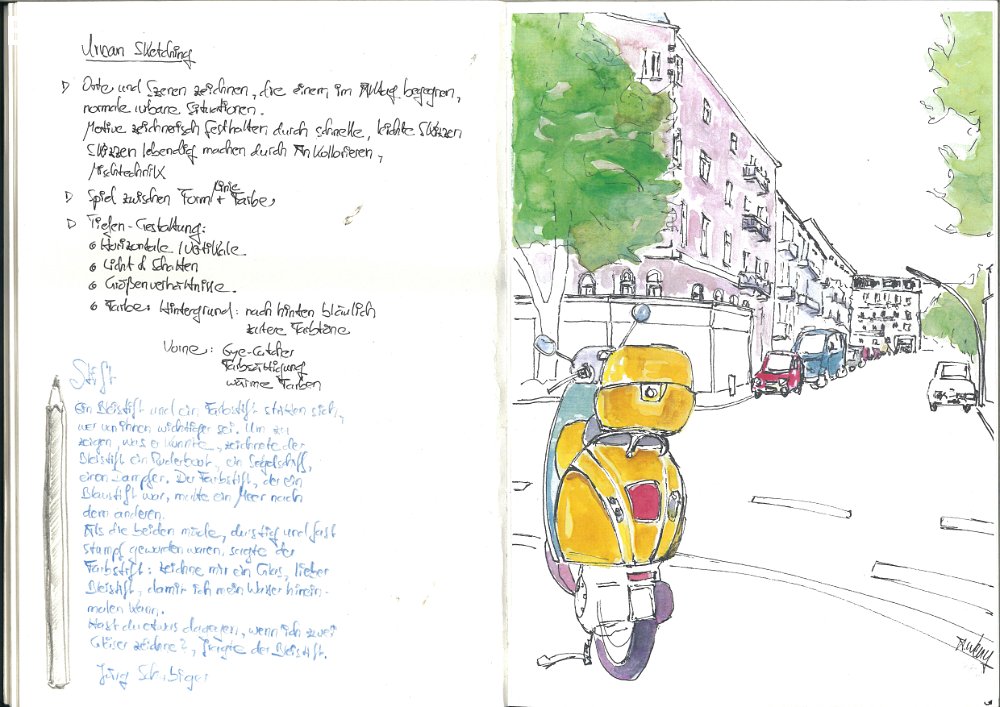 Urban Sketching
▷ Orte und Szenen zeichnen, die einem im Alltag begegnen,
normale urbane Situationen.
Motive zeichnerisch festhalten durch schnelle, leichte Skizzen
Skizzen lebendig machen durch Ankolorieren,
Mischtechnik
▷ Spiel zwischen Form/Linie + Farbe
▷ Tiefen-Gestaltung:
• Horizontale / Vertikale
• Licht & Schatten
• Größenverhältnisse.
• Farbe: Hintergrund: nach hinten bläulich
zartere Farbtöne
Vorne: Eye-Catcher
Farbsättigung
warme Farben
Stift
Ein Bleistift und ein Farbstift stritten sich,
wer von ihnen wichtiger sei. Um zu
zeigen, was er konnte, zeichnete der
Bleistift ein Ruderboot, ein Segelschiff,
einen Dampfer. Der Farbstift, der ein
Blaustift war, malte ein Meer nach
dem anderen.
Als die beiden müde, durstig und fast
stumpf geworden waren, sagte der
Farbstift: zeichne mir ein Glas, lieber
Bleistift, damit ich mein Wasser hinein-
malen kann.
Hast du etwas dagegen, wenn ich zwei
Gläser zeichne?, fragte der Bleistift.
Jürg Schubiger